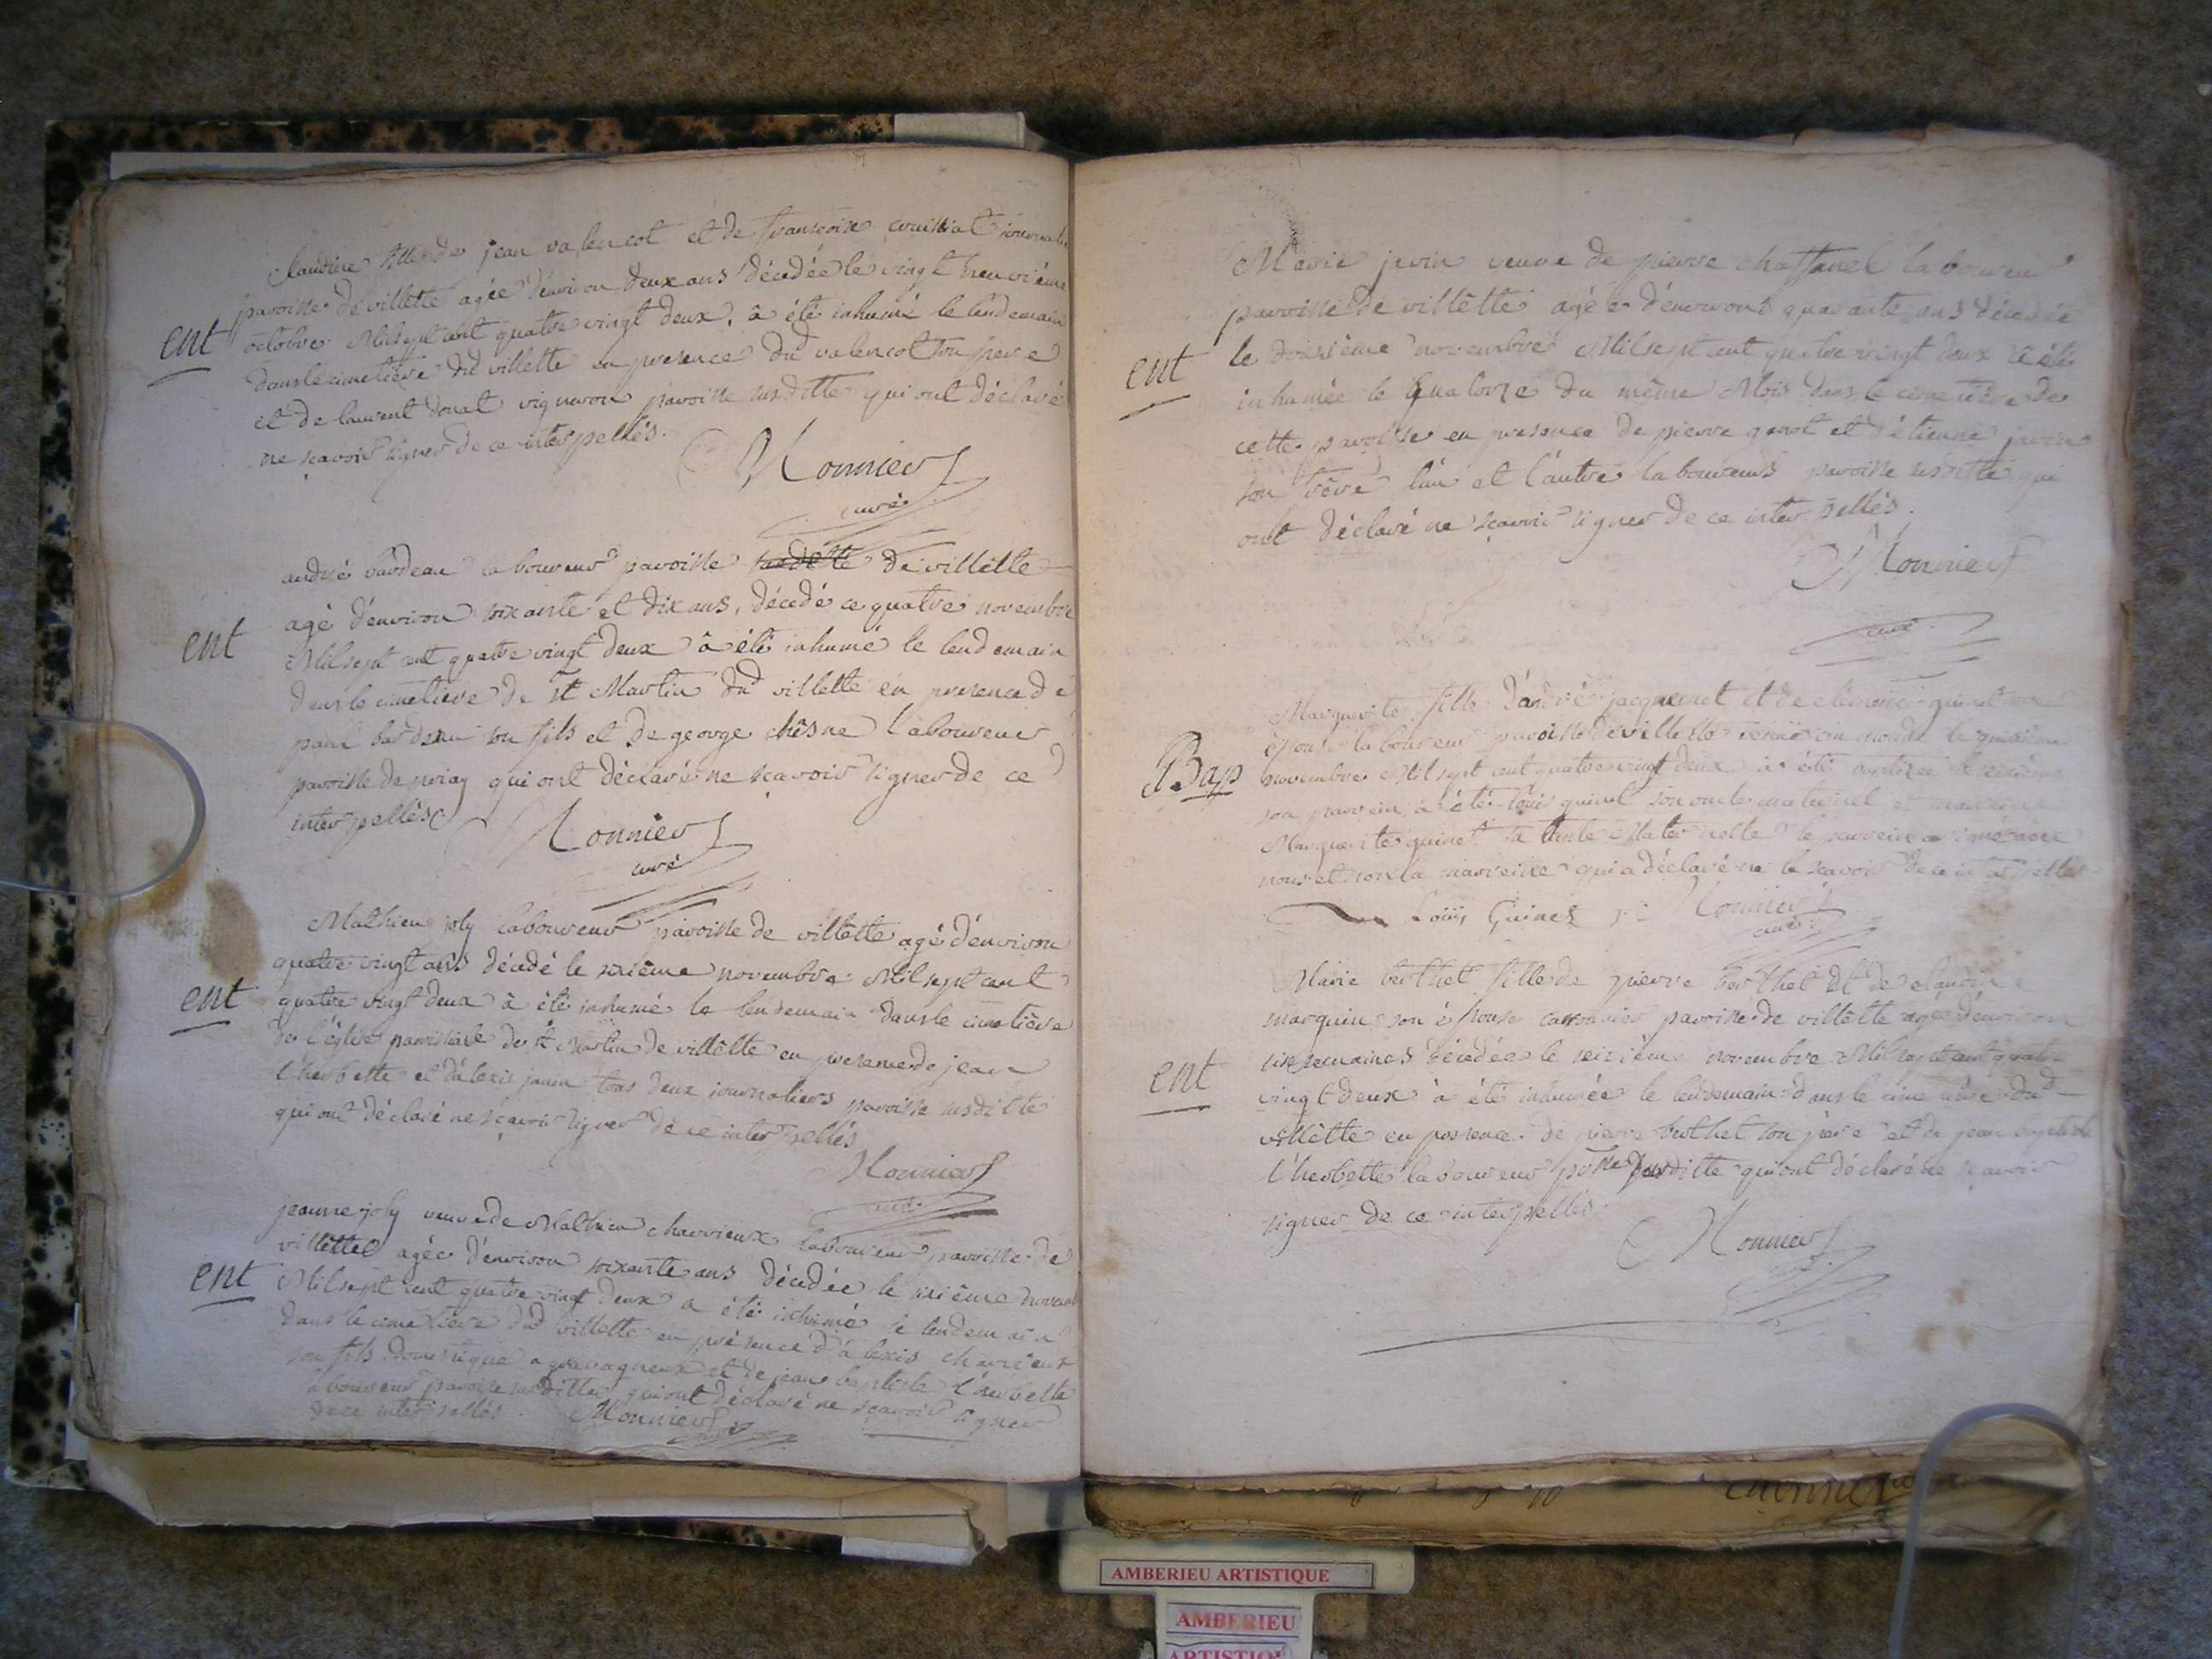 Claudine fille de jean valencot et de francoise
paroisse de villette agée d'environ deux ans décedée le vingt neuvième
ent
octobre Mil sept cent quatre vingt deux, à été inhumé le lendemain
dans le cimetière dud villette en presence dud valencot son pere
et de laurent donat vigneron paroisse susditte qui ont déclaré
ne scavoir signer de ce interpellés.
Monnier
curé
andré bardeau laboureur paroisse de villette
agé d'environ soixante et dix ans, décedé ce quatre novembre
ent
Mil sept cent quatre vingt deux à été inhumé le lendemain
dans le cimetiere de st Martin dud villette en presence de
paul bardeau son fils et de george chêsne laboureur
paroisse de qui ont déclaré ne scavoir signer de ce
interpellés
Monnier
curé
Mathieu joly laboureur paroisse de villette agé d'environ
quatre vingt ans décedé le sixième novembre Mil sept cent
ent
quatre vingt deux à été inhumé le lendemain dans le cimetière
de l'église paroissiale de st Martin de villette en presence de jean
l'herbette et d'alexis janin tous deux journaliers paroisse susditte
qui ont déclaré ne scavoir signer de ce interpellés
Monnier
curé
jeanne joly veuve de Mathieu charvieux laboureur paroisse de
villette agée d'environ soixante ans décedée le sixième
ent
Mil sept cent quatre vingt deux a été inhumé le lendemain
dans le cimetière dud villette en présence d'alexis charvieux
son fils domestique a et de jean baptiste l'herbette
laboureur paroisse susditte qui ont déclaré ne scavoir signer
de ce interpellés. Monnier
curé
Marie jevin veuve de pierre chaffanel laboureur
paroisse de villette agée d'environ quarante ans décedée
ent
le novembre Mil sept cent quatre vingt deux à été
inhumée le quatorze du même Mois dans le cimetière de
cette paroisse en presence de pierre genot et d'étienne jevin
son frère l'un et l'autre laboureurs paroisse susditte qui
ont déclaré ne scavoir signer de ce interpellés.
Monnier
curé
Marguerite fille d'andré jacquemet et de quinet son
épouse laboureur paroisse de villette venue au monde le
Bap
novembre Mil sept cent quatre vingt deux à été
son parrein à été louis quinet son oncle maternel et marreine
Marguerite quinet sa tante Maternelle le parrein a signé avec
nous et non la marreine qui a déclaré ne le scavoir de ce interpellés
Loüis Guinet Monnier
curé
Marie berthet fille de pierre berthet et de claudine
marquin son épouse paroisse de villette agée d'environ
six semaines décedée le seizième novembre Mil sept cent quatre
ent
vingt deux à été inhumée le lendemain dans le cimetière dud
villette en presence de pierre berthet son père et de jean baptiste
l'herbette laboureur susditte qui ont déclaré ne scavoir
signer de ce interpellés
Monnier
AMBERIEU ARTISTIQUE
AMBERIEU